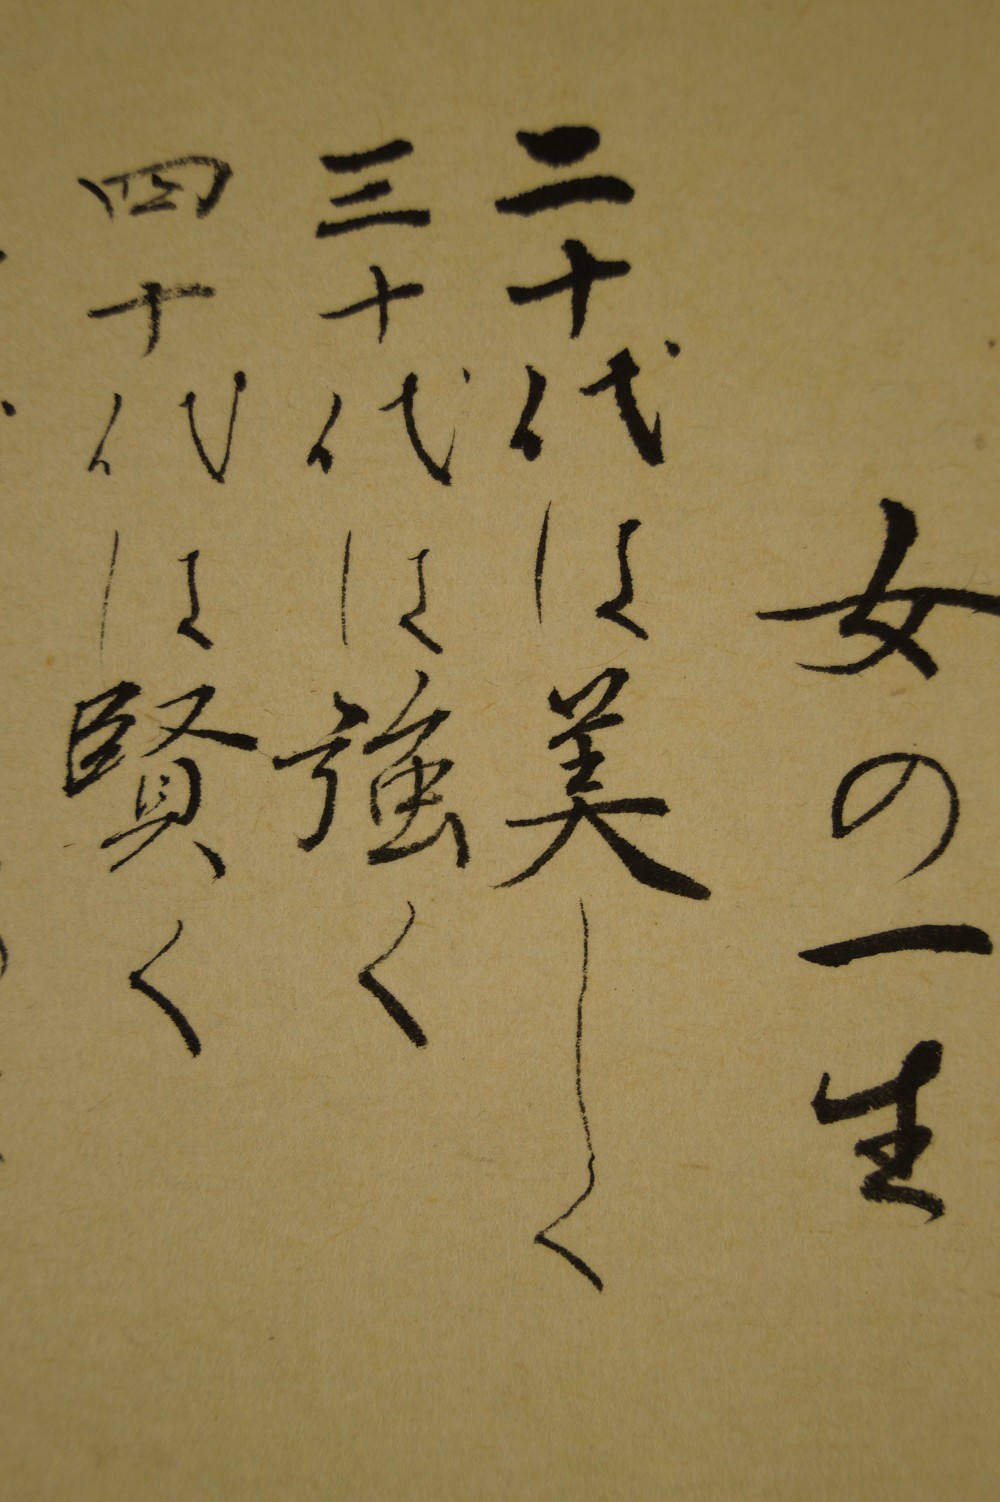 女の一生
二十代は美しく
三十代は強く
四十代は賢く